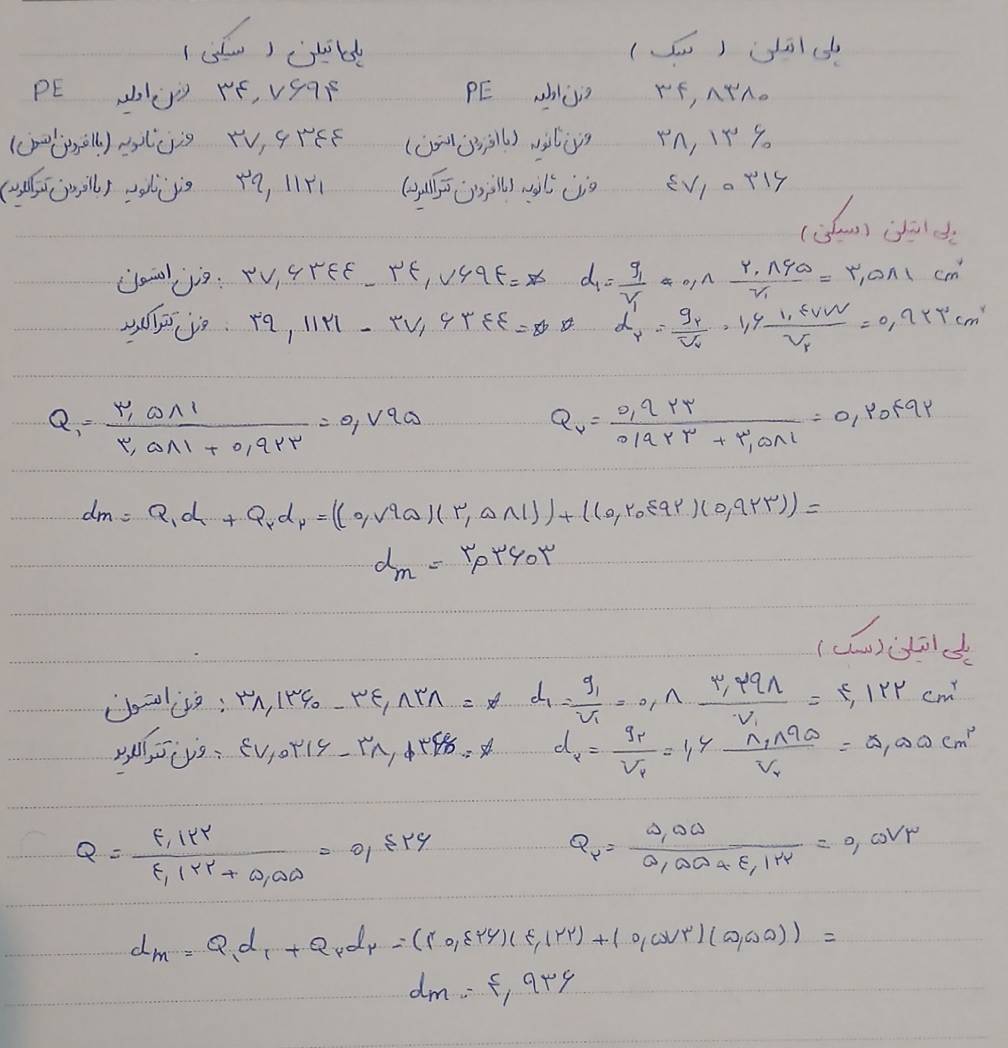 پلی اتیلن (سبک) پلی اتیلن (سنگین)
PE وزن اولیه ۳۴,۸۳۸۰ PE وزن اولیه ۳۴,۷۶۹۴
وزن ثانویه (با افزودن استون) ۳۸,۱۳۶۰ وزن ثانویه (با افزودن استون) ۳۷,۶۳۴۴
وزن ثانویه (با افزودن تتراکلرید) ۴۷,۰۳۱۶ وزن ثانویه (با افزودن تتراکلرید) ۳۹,۱۱۲۱
پلی اتیلن (سنگین)
وزن استون: ۳۷,۶۳۴۴ - ۳۴,۷۶۹۴ = d₁ = g₁/V₁ = ۰,۸ ۲,۸۶۵/V₁ = ۳,۵۸۱ cm³
وزن تتراکلرید: ۳۹,۱۱۲۱ - ۳۷,۶۳۴۴ = d₂ = g₂/V₂ = ۱,۶ ۱,۴۷۷۷/V₂ = ۰,۹۲۳ cm³
Q₁ = ۳,۵۸۱ / ۳,۵۸۱ + ۰,۹۲۳ = ۰,۷۹۵ Q₂ = ۰,۹۲۳ / ۰,۹۲۳ + ۳,۵۸۱ = ۰,۲۰۴۹۲
dm = Q₁d₁ + Q₂d₂ = ((۰,۷۹۵)(۳,۵۸۱)) + ((۰,۲۰۴۹۲)(۰,۹۲۳)) =
dm = ۳,۰۳۶۰۳
پلی اتیلن (سبک)
وزن استون: ۳۸,۱۳۶۰ - ۳۴,۸۳۸ = d₁ = g₁/V₁ = ۰,۸ ۳,۲۹۸/V₁ = ۴,۱۲۲ cm³
وزن تتراکلرید: ۴۷,۰۳۱۶ - = d₂ = g₂/V₂ = ۱,۶ ۸,۸۹۵/V₂ = ۵,۵۵ cm³
Q = ۴,۱۲۲ / ۴,۱۲۲ + ۵,۵۵ = ۰,۴۲۶ Q₂ = ۵,۵۵ / ۵,۵۵ + ۴,۱۲۲ = ۰,۵۷۳
dm = Q₁d₁ + Q₂d₂ = ((۰,۴۲۶)(۴,۱۲۲) + (۰,۵۷۳)(۵,۵۵)) =
dm = ۴,۹۳۶